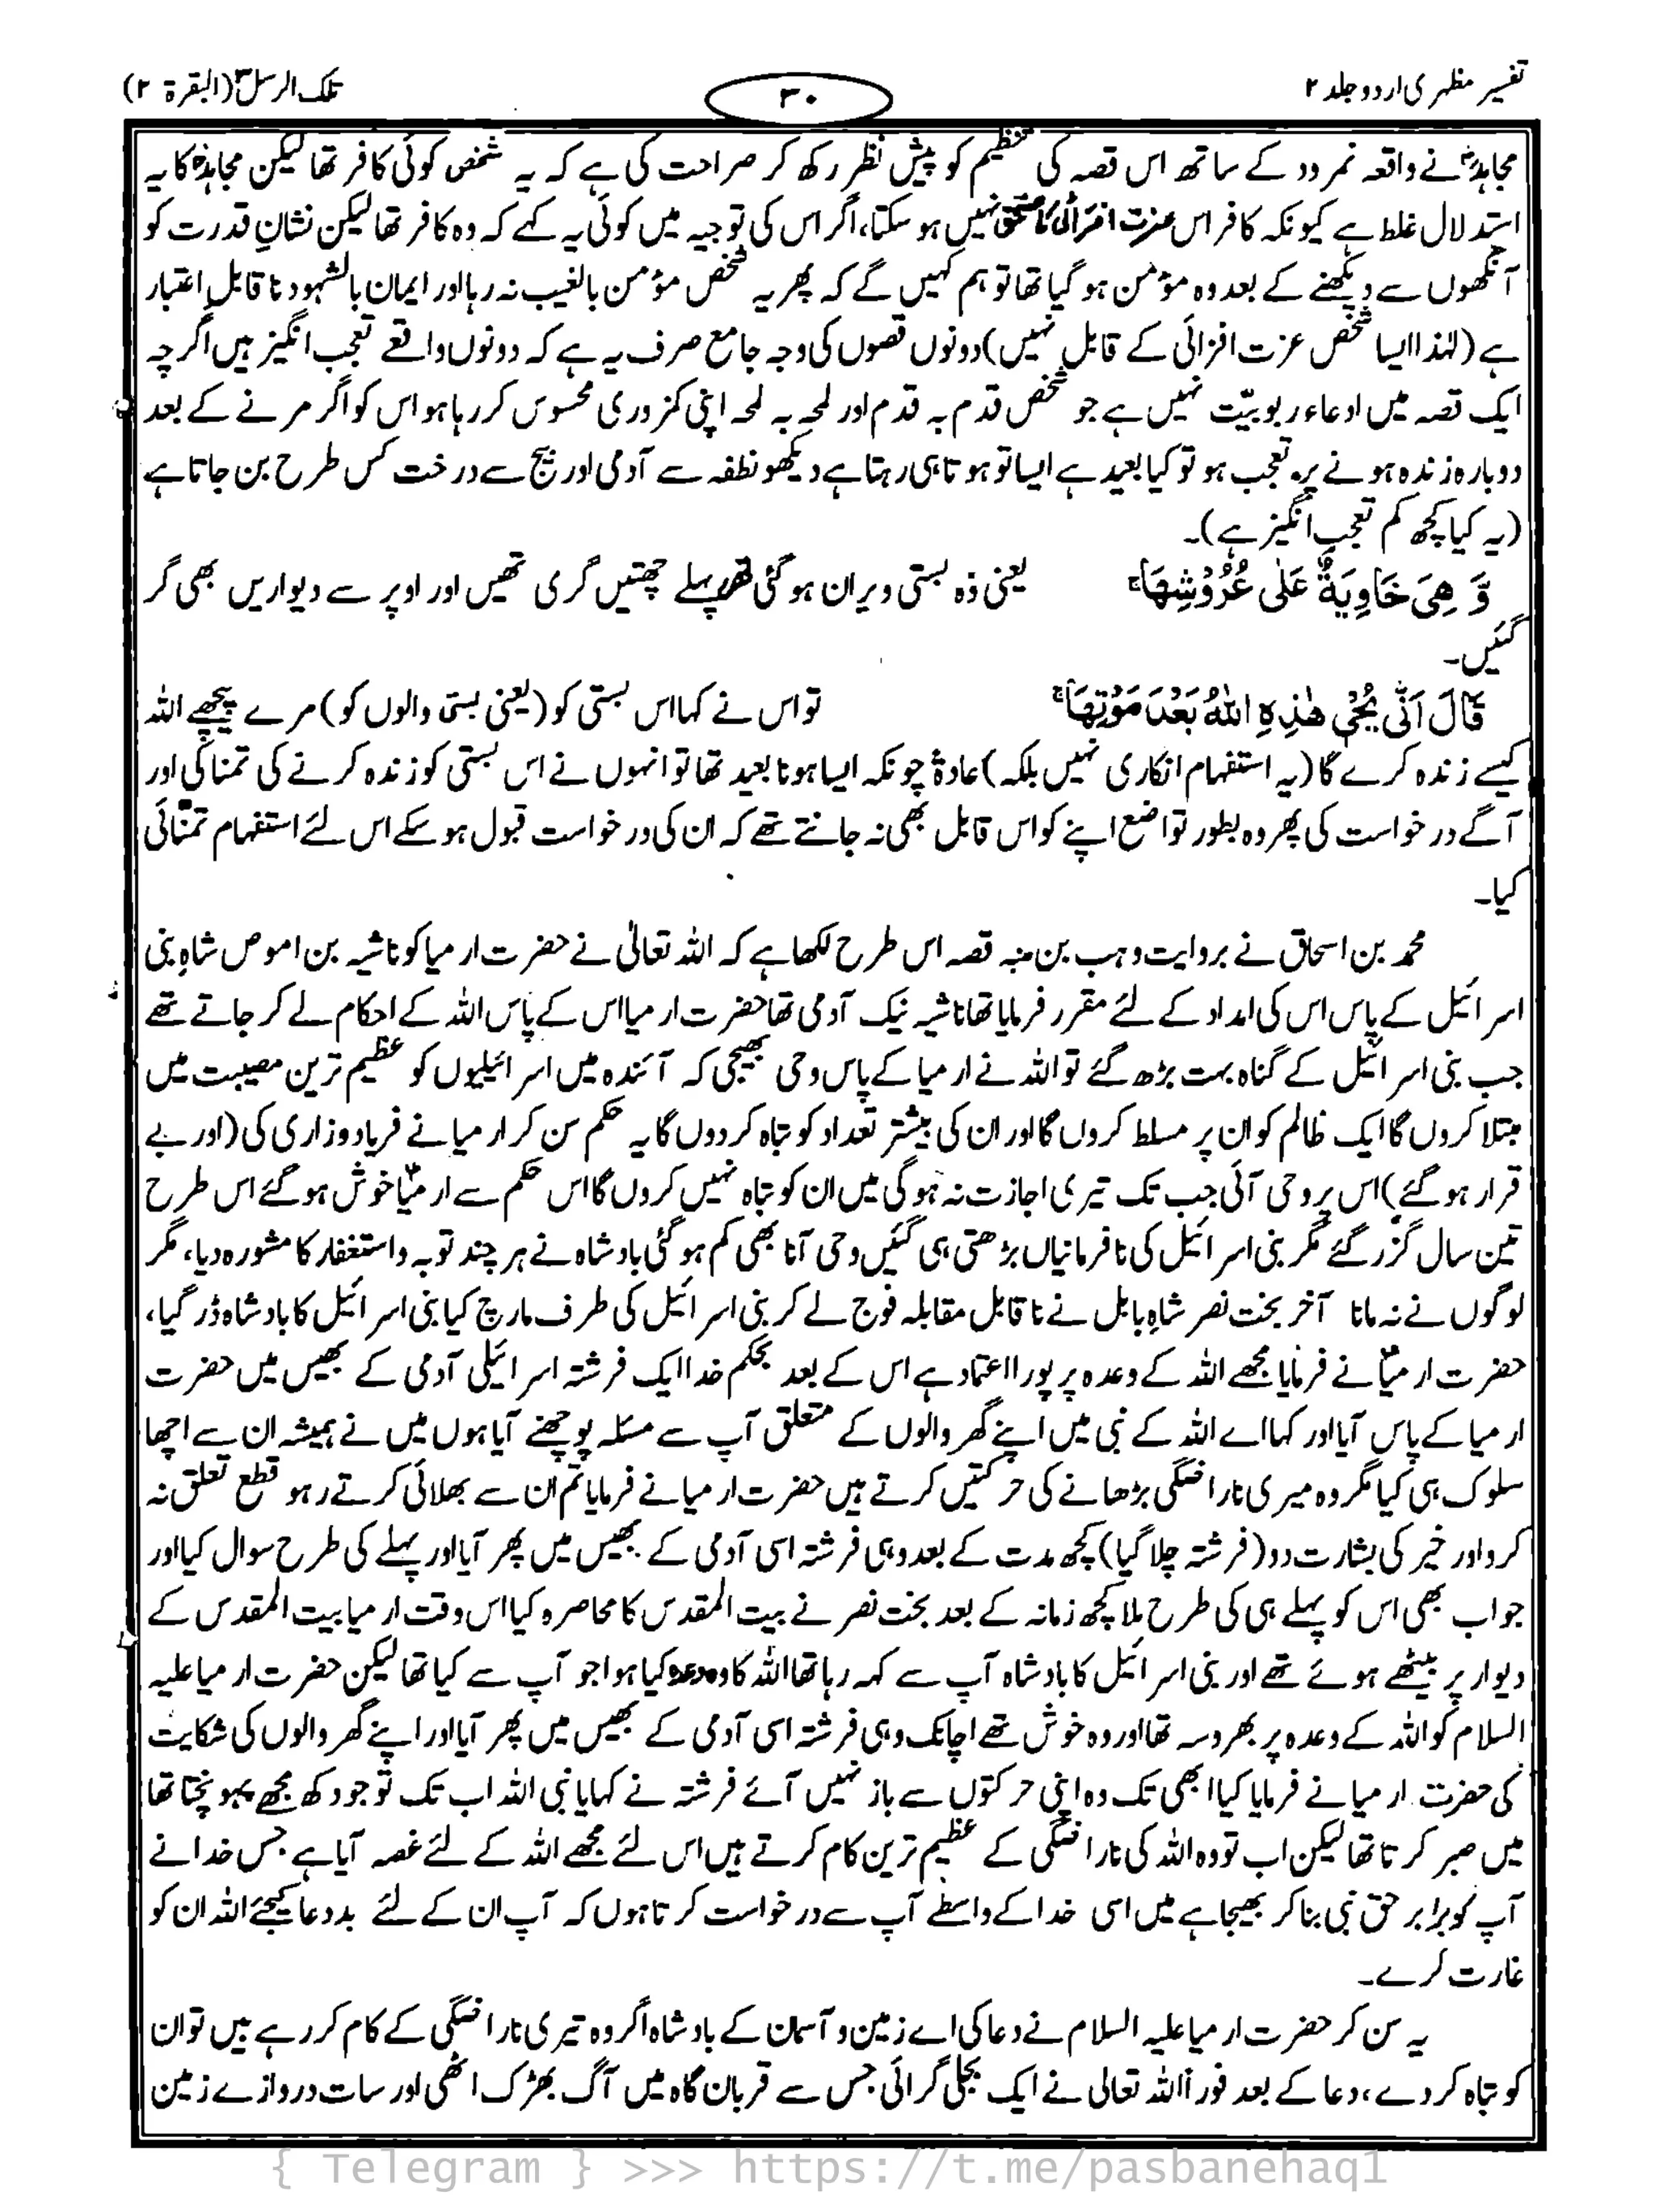 تفسیر مظہری اردو جلد ۲
۳۰
تلک الرسل ۳ (البقرۃ ۲)
مجاہدؒ نے واقعہ نمرود کے ساتھ اس قصہ کی تنظیم کو پیش نظر رکھ کر صراحت کی ہے کہ یہ شخص کوئی کافر تھا لیکن مجاہدؒ کا یہ
استدلال غلط ہے کیونکہ کافر اس عزت افزائی کا مستحق نہیں ہو سکتا، اگر اس کی توجیہ میں کوئی یہ کہے کہ وہ کافر تھا لیکن نشانِ قدرت کو
آنکھوں سے دیکھنے کے بعد وہ مؤمن ہو گیا تھا تو ہم کہیں گے کہ پھر یہ شخص مؤمن بالغیب نہ رہا اور ایمان بالشہود ناقابلِ اعتبار
ہے (لہٰذا ایسا شخص عزت افزائی کے قابل نہیں) دونوں قصوں کی وجہ جامع صرف یہ ہے کہ دونوں واقعے تعجب انگیز ہیں اگرچہ
ایک قصہ میں ادعاء ربوبیّت نہیں ہے جو شخص قدم بہ قدم اور لمحہ بہ لمحہ اپنی کمزوری محسوس کر رہا ہو اس کو اگر مرنے کے بعد
دوبارہ زندہ ہونے پر تعجب ہو تو کیا بعید ہے ایسا تو ہوتا ہی رہتا ہے دیکھو نطفہ سے آدمی اور بیج سے درخت کس طرح بن جاتا ہے
(یہ کیا کچھ کم تعجب انگیز ہے)۔
وَّ هِیَ خَاوِیَةٌ عَلٰی عُرُوْشِهَاۚ یعنی وہ بستی ویران ہو گئی تھی پہلے چھتیں گری تھیں اور اوپر سے دیواریں بھی گر
گئیں۔
قَالَ اَنّٰی یُحْیٖ هٰذِهِ اللّٰهُ بَعْدَ مَوْتِهَاۚ تو اس نے کہا اس بستی کو (یعنی بستی والوں کو) مرے پیچھے اللہ
کیسے زندہ کرے گا (یہ استفہام انکاری نہیں بلکہ) عادۃً چونکہ ایسا ہونا بعید تھا تو انہوں نے اس بستی کو زندہ کرنے کی تمنا کی اور
آگے درخواست کی پھر وہ بطور تواضع اپنے کو اس قابل بھی نہ جانتے تھے کہ ان کی درخواست قبول ہو سکے اس لئے استفہام تمنّائی
کیا۔
محمد بن اسحاق نے بروایت وہب بن منبہ قصہ اس طرح لکھا ہے کہ اللہ تعالیٰ نے حضرت ارمیا کو ناشیہ بن اموص شاہِ بنی
اسرائیل کے پاس اس کی امداد کے لئے مقرر فرمایا تھا ناشیہ نیک آدمی تھا حضرت ارمیا اس کے پاس اللہ کے احکام لے کر جاتے تھے
جب بنی اسرائیل کے گناہ بہت بڑھ گئے تو اللہ نے ارمیا کے پاس وحی بھیجی کہ آئندہ میں اسرائیلیوں کو عظیم ترین مصیبت میں
مبتلا کروں گا ایک ظالم کو ان پر مسلط کروں گا اور ان کی بیشتر تعداد کو تباہ کر دوں گا یہ حکم سن کر ارمیا نے فریاد و زاری کی (اور بے
قرار ہو گئے) اس پر وحی آئی جب تک تیری اجازت نہ ہوگی میں ان کو تباہ نہیں کروں گا اس حکم سے ارمیاؑ خوش ہو گئے اس طرح
تین سال گزر گئے مگر بنی اسرائیل کی نافرمانیاں بڑھتی ہی گئیں وحی آنا بھی کم ہو گئی بادشاہ نے ہر چند توبہ و استغفار کا مشورہ دیا، مگر
لوگوں نے نہ مانا آخر بخت نصر شاہِ بابل نے ناقابل مقابلہ فوج لے کر بنی اسرائیل کی طرف مارچ کیا بنی اسرائیل کا بادشاہ ڈر گیا،
حضرت ارمیاؑ نے فرمایا مجھے اللہ کے وعدہ پر پورا اعتماد ہے اس کے بعد بحکم خدا ایک فرشتہ اسرائیلی آدمی کے بھیس میں حضرت
ارمیا کے پاس آیا اور کہا اے اللہ کے نبی میں اپنے گھر والوں کے متعلق آپ سے مسئلہ پوچھنے آیا ہوں میں نے ہمیشہ ان سے اچھا
سلوک ہی کیا مگر وہ میری ناراضگی بڑھانے کی حرکتیں کرتے ہیں حضرت ارمیا نے فرمایا تم ان سے بھلائی کرتے رہو قطع تعلق نہ
کرو اور خیر کی بشارت دو (فرشتہ چلا گیا) کچھ مدت کے بعد وہی فرشتہ اسی آدمی کے بھیس میں پھر آیا اور پہلے کی طرح سوال کیا اور
جواب بھی اس کو پہلے ہی کی طرح ملا کچھ زمانہ کے بعد بخت نصر نے بیت المقدس کا محاصرہ کیا اس وقت ارمیا بیت المقدس کے
دیوار پر بیٹھے ہوئے تھے اور بنی اسرائیل کا بادشاہ آپ سے کہہ رہا تھا اللہ کا وہ وعدہ کیا ہوا جو آپ سے کیا تھا لیکن حضرت ارمیا علیہ
السلام کو اللہ کے وعدہ پر بھروسہ تھا اور وہ خوش تھے اچانک وہی فرشتہ اسی آدمی کے بھیس میں پھر آیا اور اپنے گھر والوں کی شکایت
کی حضرت ارمیا نے فرمایا کیا ابھی تک وہ اپنی حرکتوں سے باز نہیں آئے فرشتہ نے کہا یا نبی اللہ اب تک تو جو دکھ مجھے پہونچتا تھا
میں صبر کرتا تھا لیکن اب تو وہ اللہ کی ناراضگی کے عظیم ترین کام کرتے ہیں اس لئے مجھے اللہ کے لئے غصہ آیا ہے جس خدا نے
آپ کو برابر حق نبی بنا کر بھیجا ہے میں اسی خدا کے واسطے آپ سے درخواست کرتا ہوں کہ آپ ان کے لئے بددعا کیجئے اللہ ان کو
غارت کرے۔
یہ سن کر حضرت ارمیا علیہ السلام نے دعا کی اے زمین و آسمان کے بادشاہ اگر وہ تیری ناراضگی کے کام کر رہے ہیں تو ان
کو تباہ کر دے، دعا کے بعد فوراً اللہ تعالی نے ایک بجلی گرائی جس سے قربان گاہ میں آگ بھڑک اٹھی اور سات دروازے زمین
{ Telegram } >>> https://t.me/pasbanehaq1